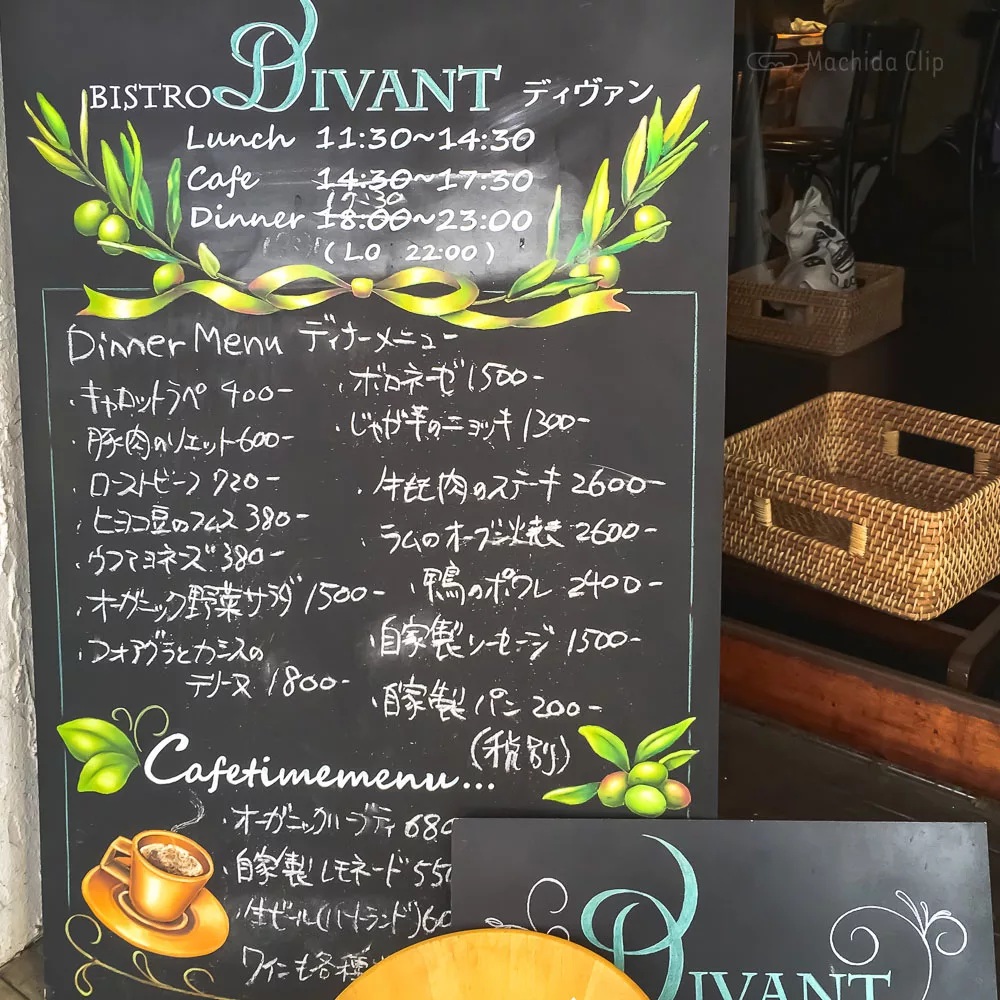 Machida Clip
BISTRO DIVANT ディヴァン
Lunch 11:30~14:30
Cafe 14:30~17:30
17:30
Dinner 18:00~23:00
(L.O 22:00)
Dinner Menu ディナーメニュー
・キャロットラペ 400-
・豚肉のリエット 600-
・ローストビーフ 720-
・ヒヨコ豆のフムス 380-
・ウフマヨネーズ 380-
・オーガニック野菜サラダ 1500-
・フォアグラとカシスの
テリーヌ 1800-
・ボロネーゼ 1500-
・じゃが芋のニョッキ 1300-
・牛もも肉のステーキ 2600-
・ラムのオーブン焼き 2600-
・鴨のポワレ 2400-
・自家製ソーセージ 1500-
・自家製パン 200-
(税別)
Cafetimemenu...
・オーガニックハーブティ 680
・自家製レモネード 550
・生ビール(ハートランド) 60
ワインも各種
DIVANT